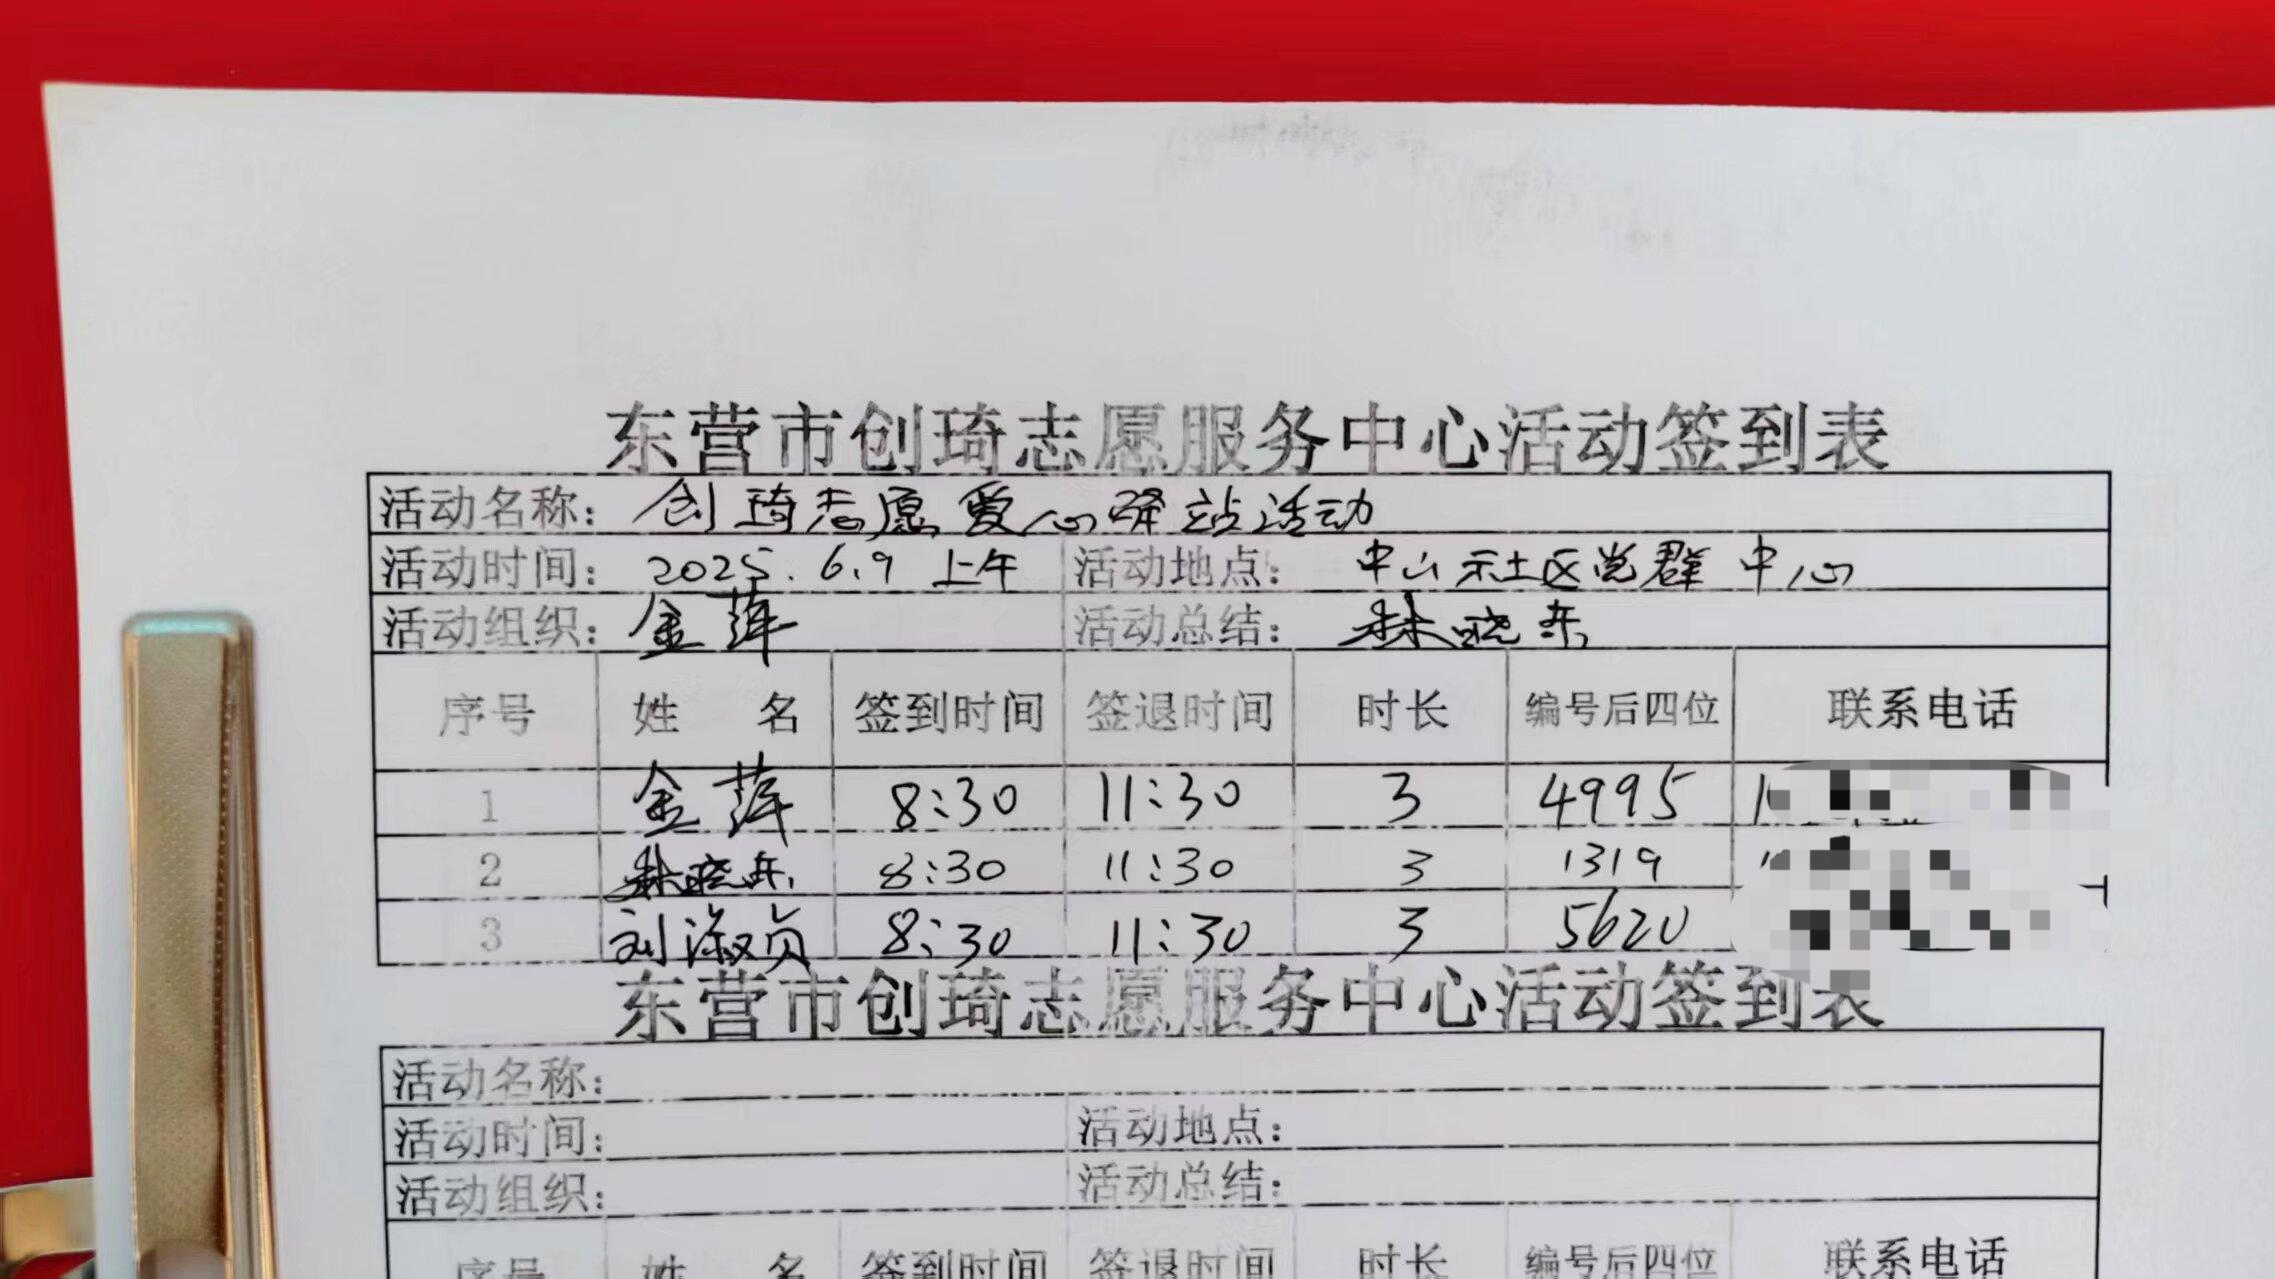 东营市创琦志愿服务中心活动签到表
活动名称: 创琦志愿爱心驿站活动
活动时间: 2025.6.9 上午 活动地点: 中山社区党群中心
活动组织: 金萍 活动总结: 林晓东
序号 姓 名 签到时间 签退时间 时长 编号后四位 联系电话
1 金萍 8:30 11:30 3 4995
2 林晓东 8:30 11:30 3 1319
3 刘淑贞 8:30 11:30 3 5620
东营市创琦志愿服务中心活动签到表
活动名称:
活动时间: 活动地点:
活动组织: 活动总结:
序号 姓 名 签到时间 签退时间 时长 编号后四位 联系电话